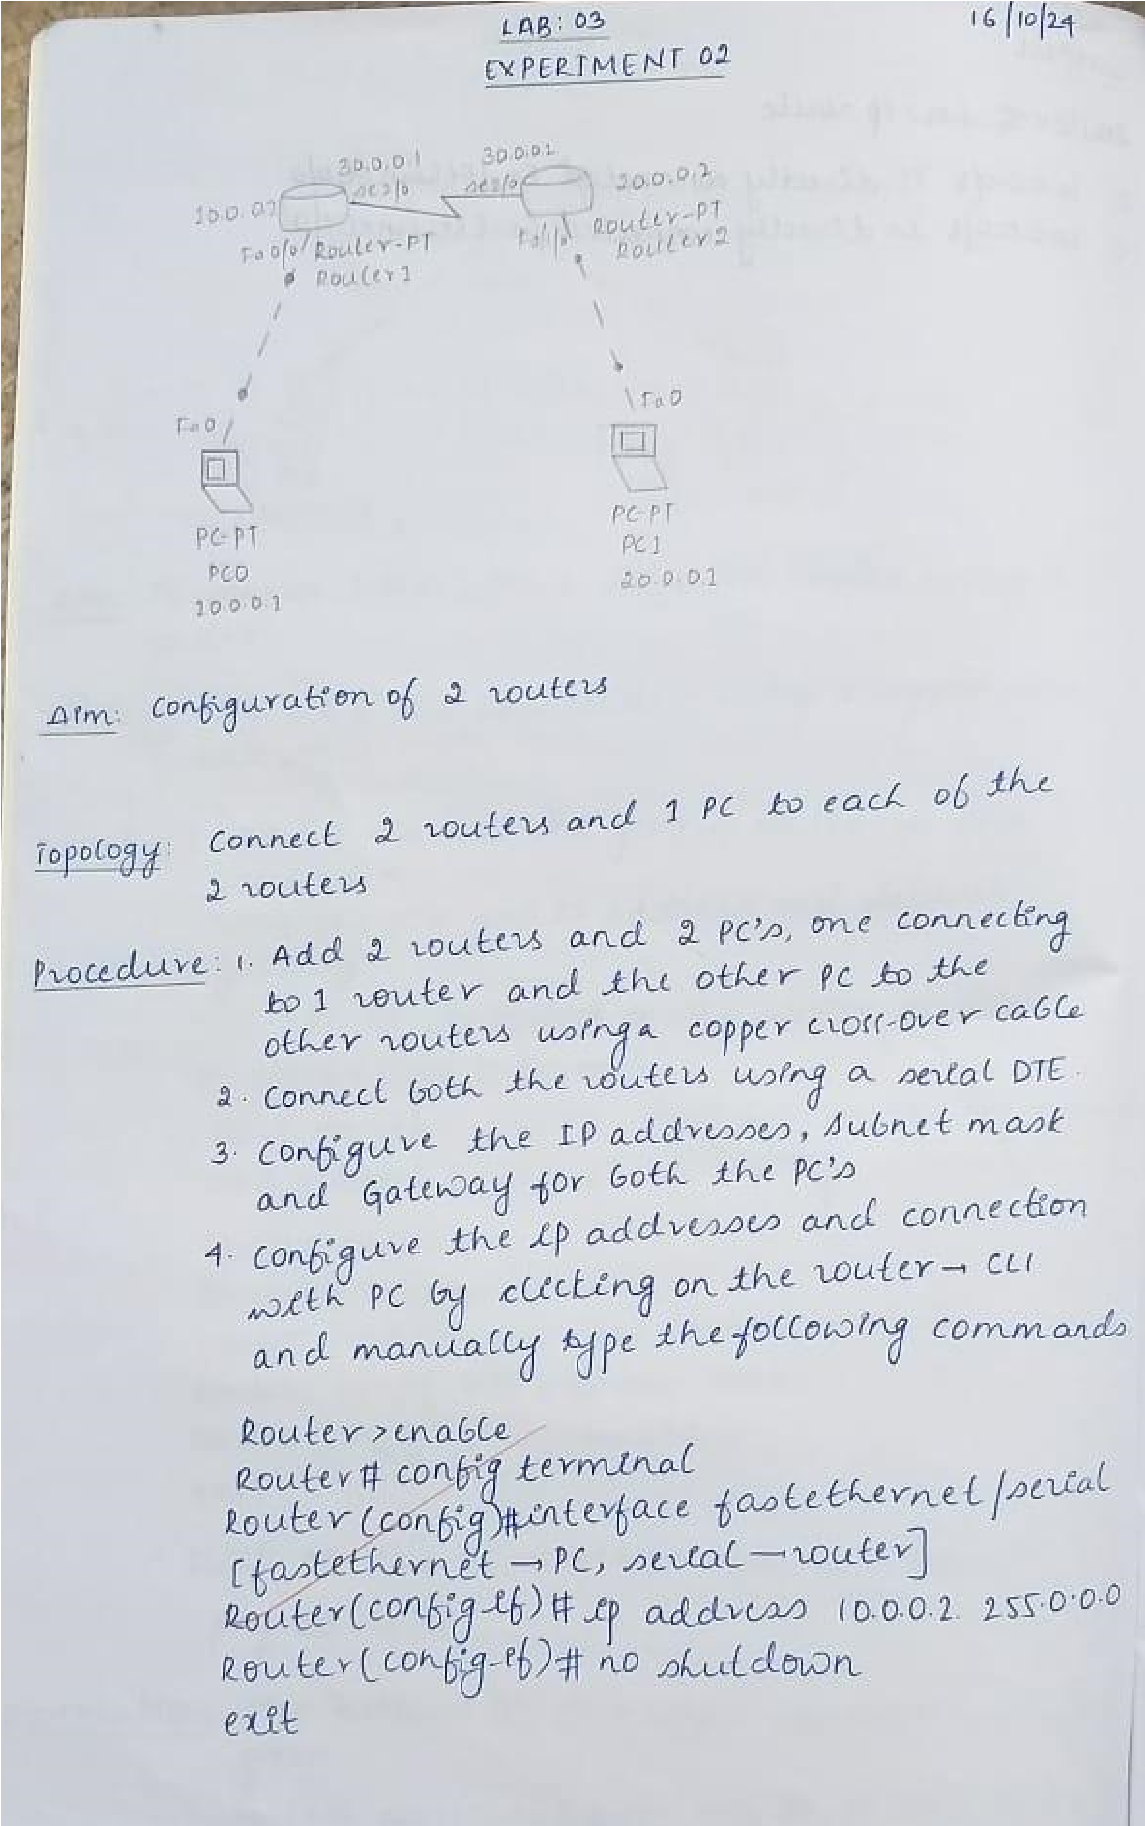 16/10/24
LAB: 03
EXPERIMENT 02
30.0.0.1
30.0.0.1
se2/0
se2/0
20.0.0.2
10.0.0.2
Fa0/0 Router-PT
Router1
Fa1/0
Router-PT
Router2
Fa0
Fa0
PC-PT
PC0
10.0.0.1
PC-PT
PC1
20.0.0.1
Aim: Configuration of 2 routers
Topology: Connect 2 routers and 1 PC to each of the
2 routers
Procedure: 1. Add 2 routers and 2 PC's, one connecting
to 1 router and the other PC to the
other routers using a copper cross-over cable
2. Connect both the routers using a serial DTE.
3. Configure the IP addresses, subnet mask
and Gateway for both the PC's
4. Configure the ip addresses and connection
with PC by clicking on the router → CLI
and manually type the following commands
Router>enable
Router# config terminal
Router(config)#interface fastethernet/serial
[fastethernet → PC, serial → router]
Router(config-if)# ip address 10.0.0.2 255.0.0.0
Router(config-if)# no shutdown
exit